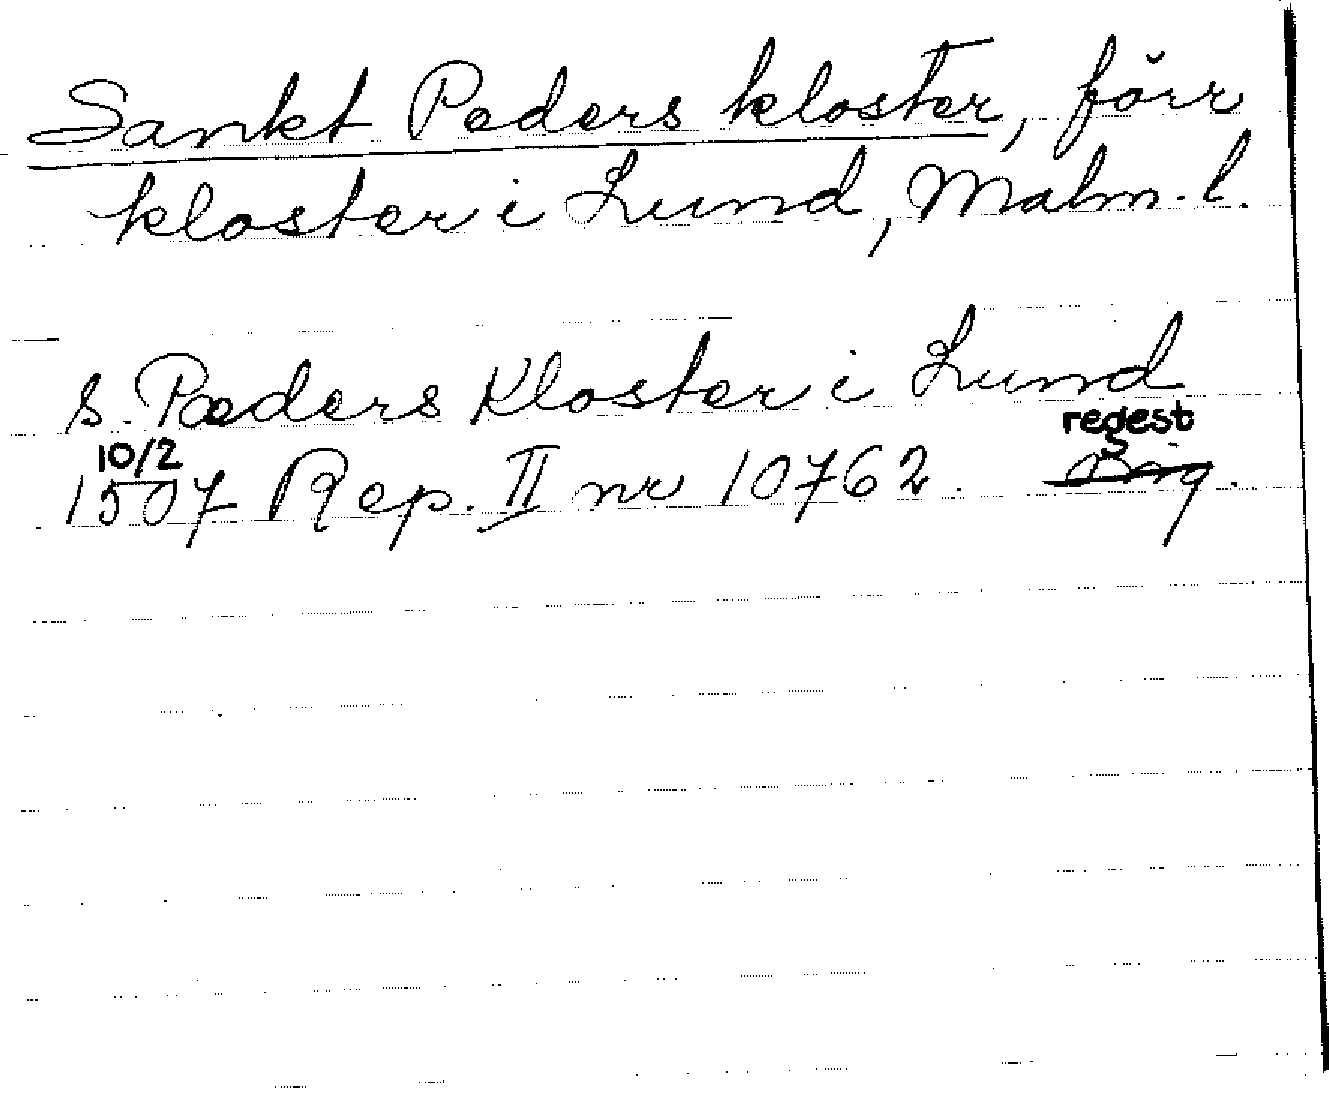 Sankt Peders kloster, förr
kloster i Lund, Malm. l.
S. Pæders Kloster i Lund
10/2 regest
1507 Rep. II nr 10762. Orig.